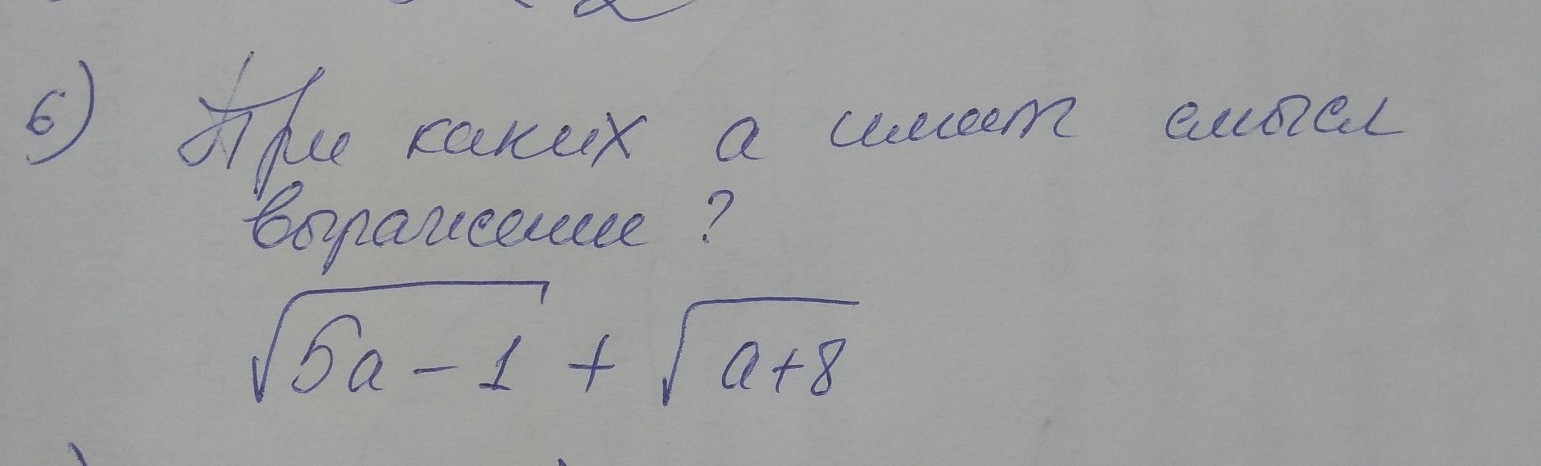 6) При каких а имеет смысл
выражение ?
√5а - 1 + √а+8